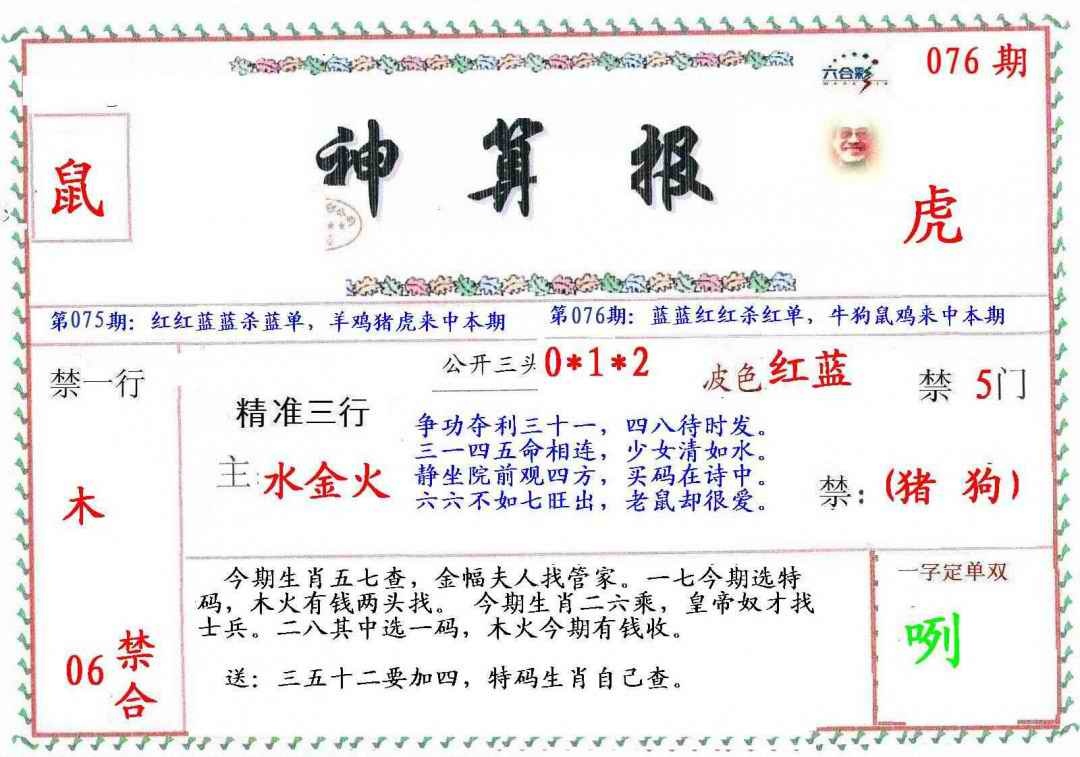 六合彩
076期
神算报
鼠
虎
第075期：红红蓝蓝杀蓝单，羊鸡猪虎来中本期
第076期：蓝蓝红红杀红单，牛狗鼠鸡来中本期
禁一行
公开三头0*1*2
波色红蓝
禁 5门
精准三行
主：水金火
争功夺利三十一，四八待时发。
三一四五命相连，少女清如水。
静坐院前观四方，买码在诗中。
六六不如七旺出，老鼠却很爱。
禁：(猪 狗)
木
06禁合
今期生肖五七查，金幅夫人找管家。一七今期选特
码，木火有钱两头找。 今期生肖二六乘，皇帝奴才找
士兵。二八其中选一码，木火今期有钱收。
送：三五十二要加四，特码生肖自己查。
一字定单双
咧